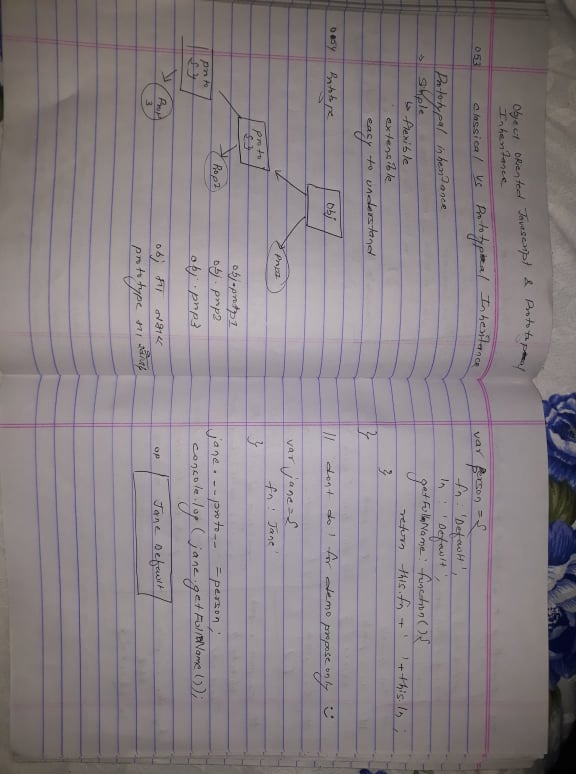 Object Oriented Javascript & Prototypeal
Inheritance
053 classical vs Prototypeal Inheritance
Prototypal inheritance
→ Simple
↳ flexible
extensible
easy to understand
0054 Prototype
Obj
Prop1
proto
{}
Prop2
proto
{}
Prop
3
obj.protp1
obj.prop2
obj.prop3
obj मा नभए
prototype मा
var person = {
fn : 'Default',
ln : 'Default',
getFullName : function() {
return this.fn + ' ' + this.ln ;
}
}
// dont do ! for demo propose only
var jane = {
fn : 'Jane'
}
jane . __proto__ = person ;
console.log ( jane.getFullName ());
op Jane Default